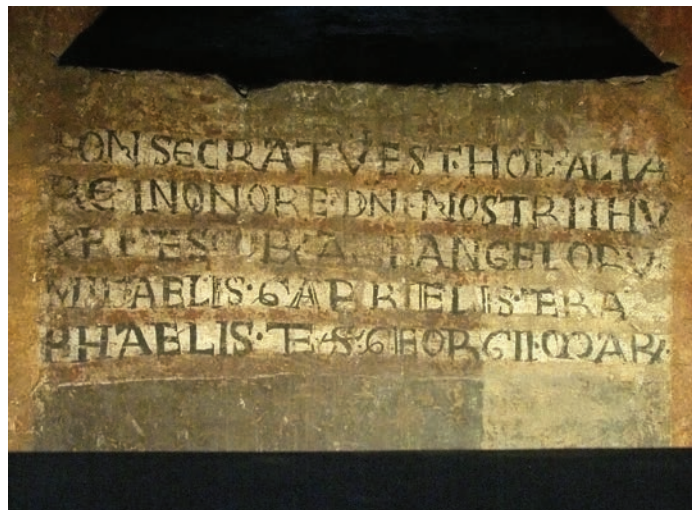 CONSECRATV EST·HOC·ALTA
RE·INONORE·DNI·NOSTRI·IHV
XPI·ET ARCANGELORV
MICAELIS·GABRIELIS·ET RA
PHAELIS·ET·S·GEORGII·MAR